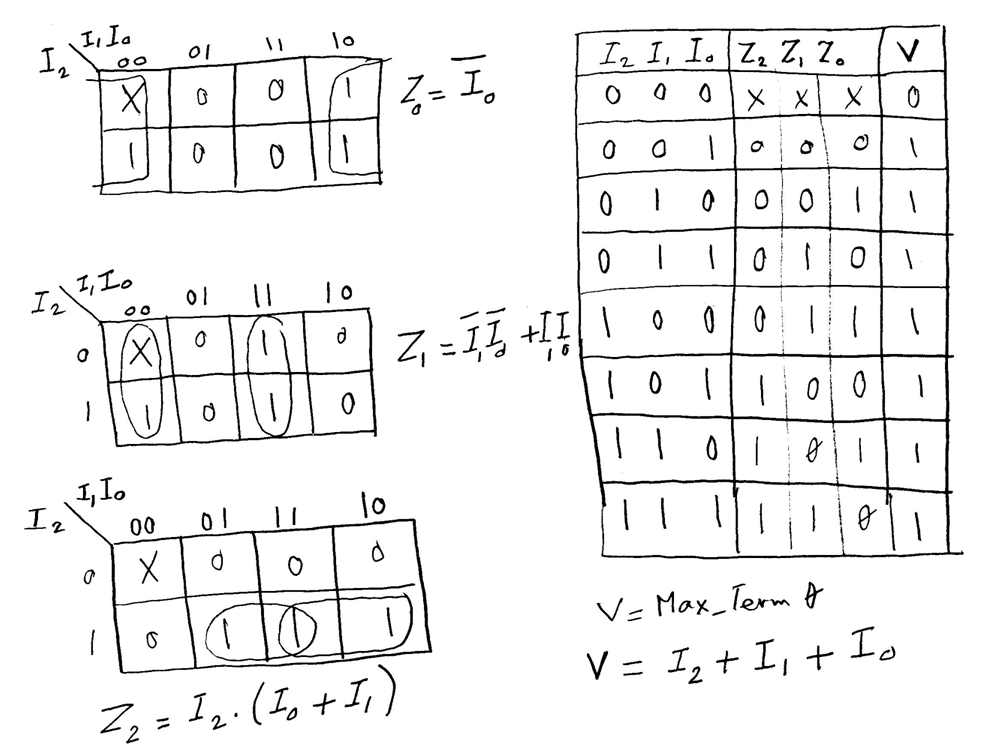 I₁I₀
I₂ 00 01 11 10
X 0 0 1
1 0 0 1
Z₀ = I̅₀
I₁I₀
I₂ 00 01 11 10
0 X 0 1 0
1 1 0 1 0
Z₁ = I̅₁I̅₀ + I₁I₀
I₁I₀
I₂ 00 01 11 10
0 X 0 0 0
1 0 1 1 1
Z₂ = I₂.(I₀ + I₁)
I₂ I₁ I₀ Z₂ Z₁ Z₀ V
0 0 0 X X X 0
0 0 1 0 0 0 1
0 1 0 0 0 1 1
0 1 1 0 1 0 1
1 0 0 0 1 1 1
1 0 1 1 0 0 1
1 1 0 1 0 1 1
1 1 1 1 1 0 1
V = Max_Term 0
V = I₂ + I₁ + I₀